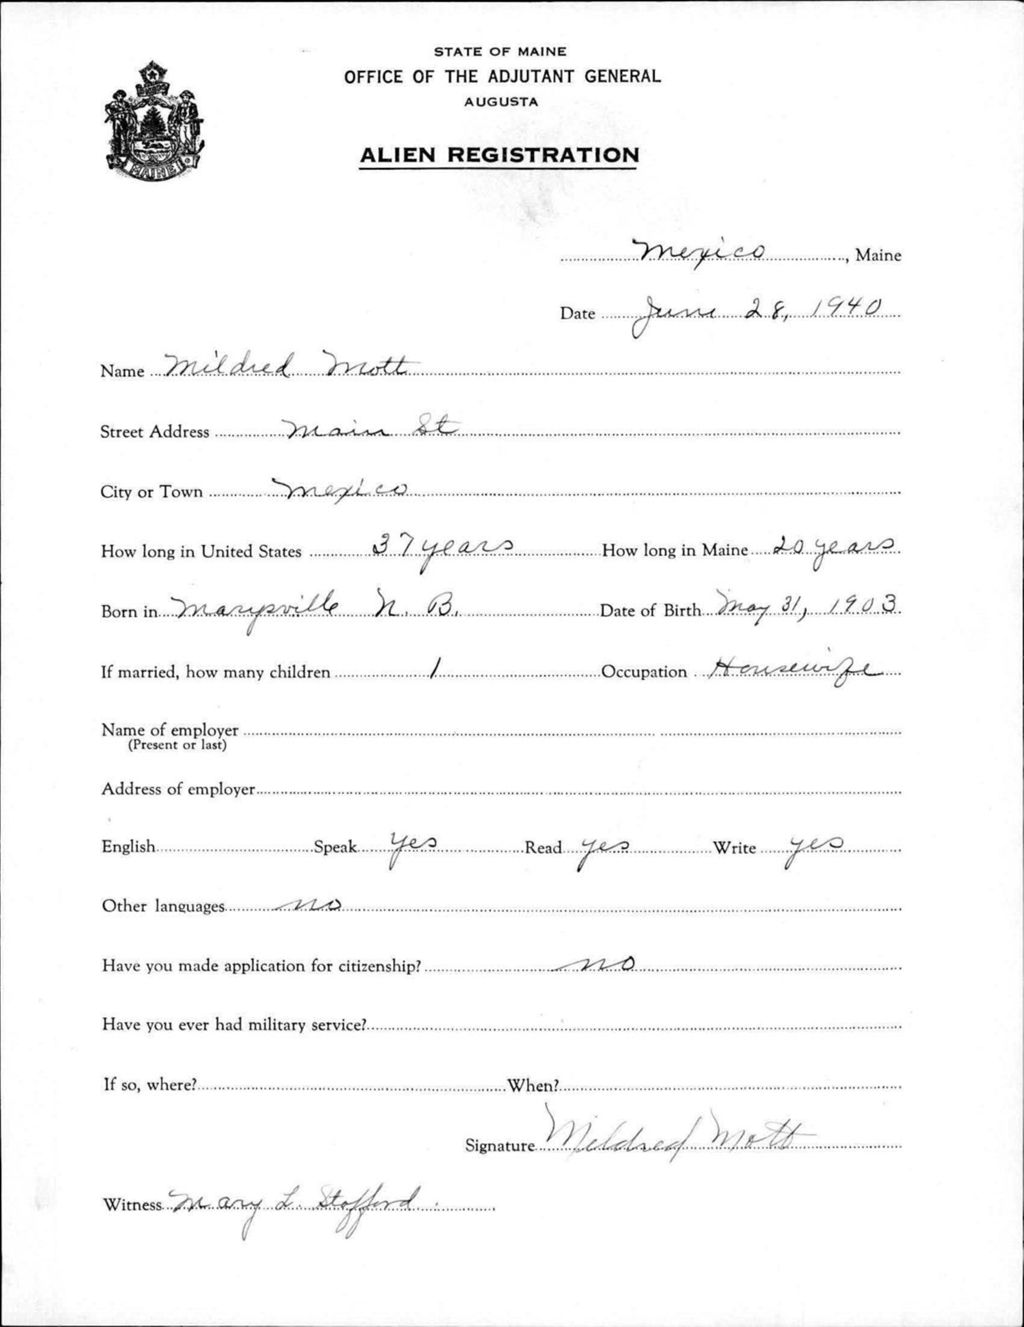 STATE OF MAINE
OFFICE OF THE ADJUTANT GENERAL
AUGUSTA
ALIEN REGISTRATION
MAINE
Mexico, Maine
Date June 28, 1940
Name Mildred Mott
Street Address Main St
City or Town Mexico
How long in United States 37 years How long in Maine 20 years
Born in Marysville N. B. Date of Birth May 31, 1903
If married, how many children 1 Occupation Housewife
Name of employer
(Present or last)
Address of employer
English Speak yes Read yes Write yes
Other languages no
Have you made application for citizenship? no
Have you ever had military service?
If so, where? When?
Signature Mildred Mott
Witness Mary L. Stofford